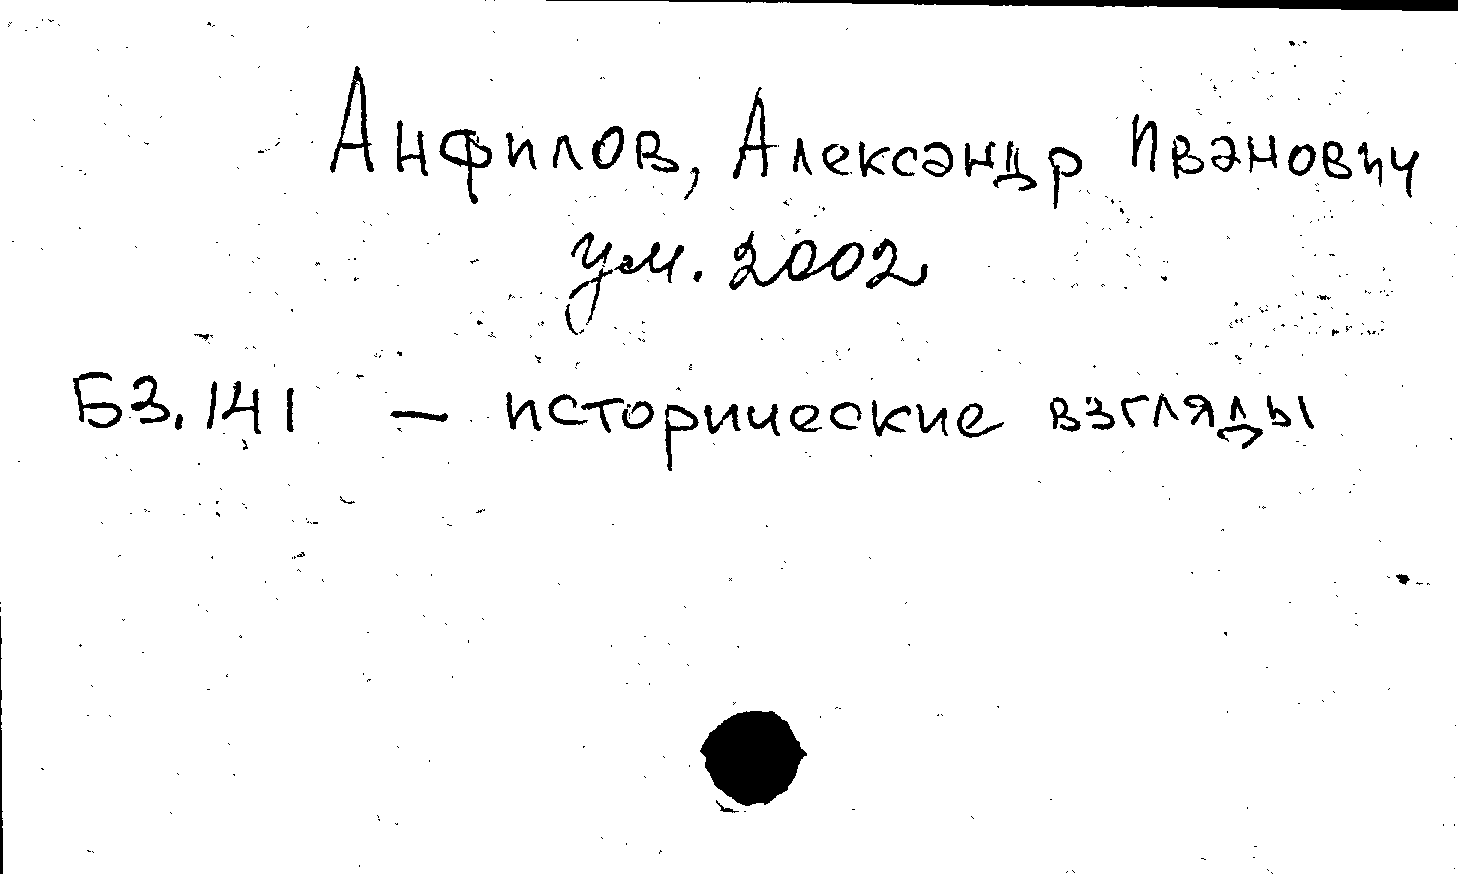 Анфилов, Александр Иванович
ум. 2002
Б3.141 — исторические взгляды